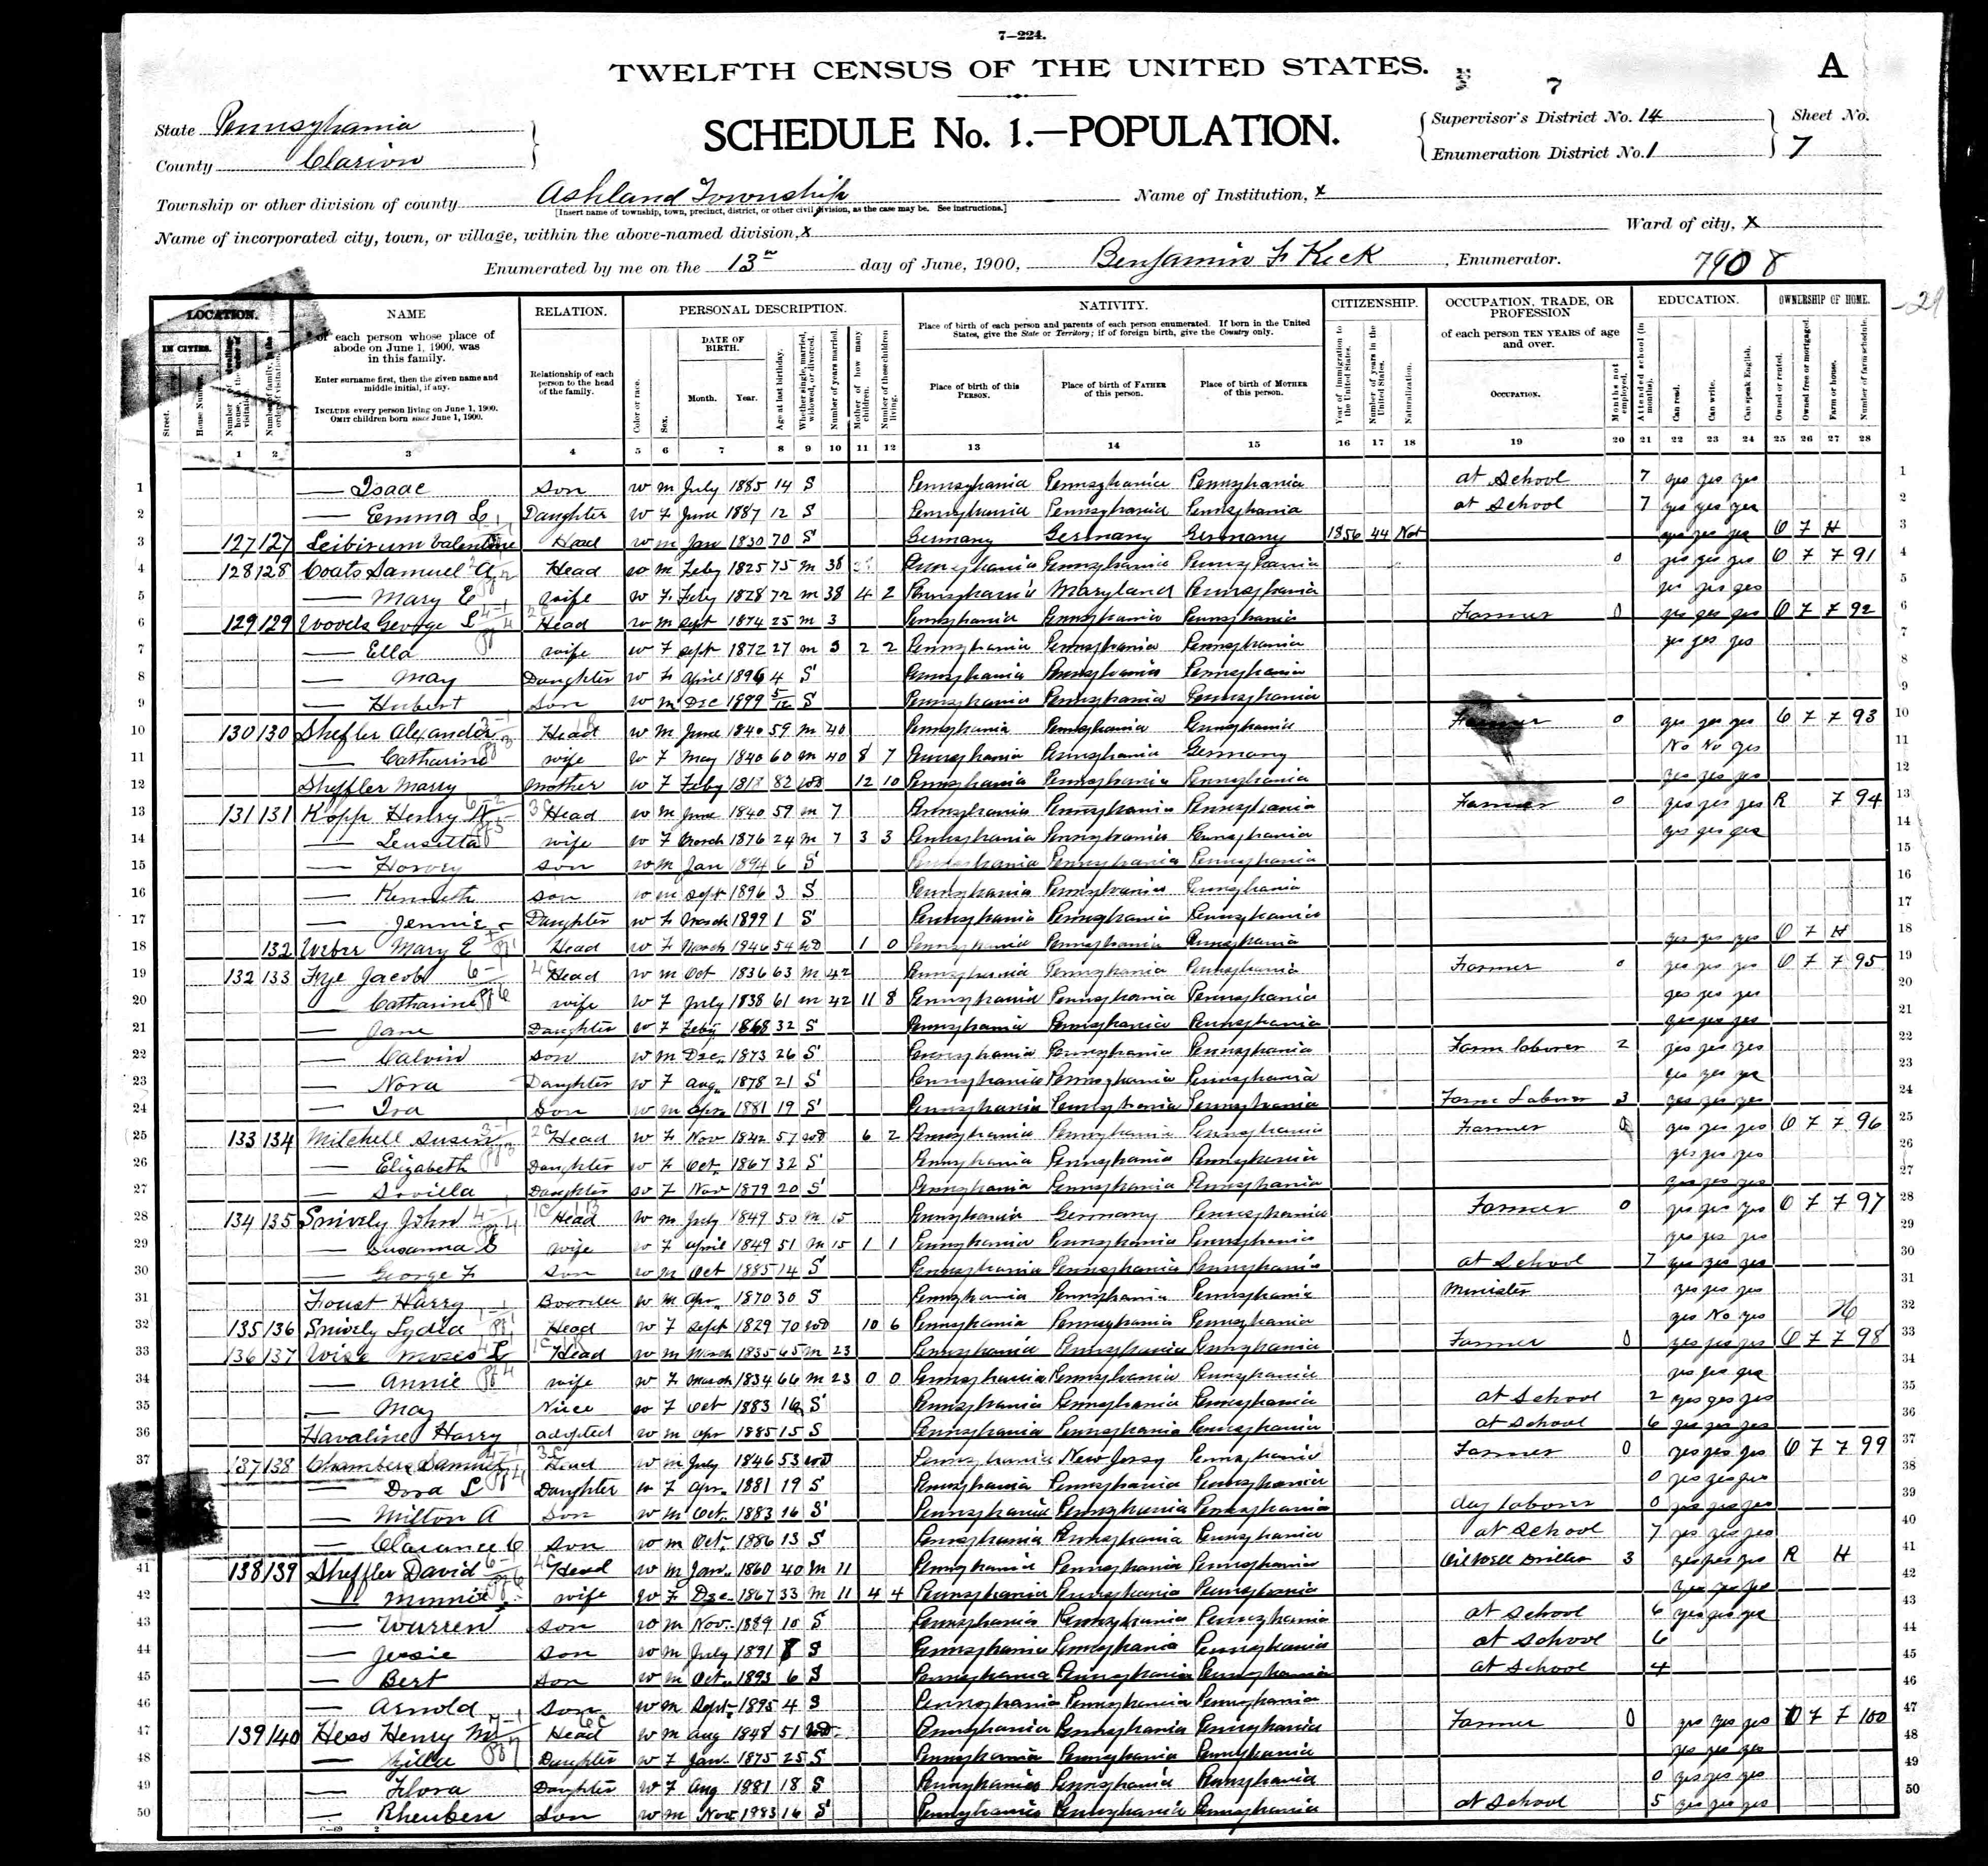 7—224.
TWELFTH CENSUS OF THE UNITED STATES.
A
7
State Pennsylvania
County Clarion
SCHEDULE No. 1.—POPULATION.
Supervisor's District No. 14
Enumeration District No. 1
Sheet No.
7
Township or other division of county Ashland Township
[Insert name of township, town, precinct, district, or other civil division, as the case may be. See instructions.]
Name of Institution, x
Name of incorporated city, town, or village, within the above-named division, x
Ward of city, x
Enumerated by me on the 13th day of June, 1900, Benjamin F Keck, Enumerator.
7908
—29
LOCATION. NAME RELATION. PERSONAL DESCRIPTION. NATIVITY. CITIZENSHIP. OCCUPATION, TRADE, OR PROFESSION EDUCATION. OWNERSHIP OF HOME.
IN CITIES.
Street.
House Number.
of each person whose place of abode on June 1, 1900, was in this family.
Enter surname first, then the given name and middle initial, if any.
INCLUDE every person living on June 1, 1900. OMIT children born since June 1, 1900.
Relationship of each person to the head of the family.
Color or race.
Sex.
DATE OF BIRTH.
Month. Year.
Age at last birthday.
Whether single, married, widowed, or divorced.
Number of years married.
Mother of how many children.
Number of these children living.
Place of birth of each person and parents of each person enumerated. If born in the United States, give the State or Territory; if of foreign birth, give the Country only.
Place of birth of this PERSON.
Place of birth of FATHER of this person.
Place of birth of MOTHER of this person.
Year of immigration to the United States.
Number of years in the United States.
Naturalization.
of each person TEN YEARS of age and over.
OCCUPATION.
Months not employed.
Attended school (in months).
Can read.
Can write.
Can speak English.
Owned or rented.
Owned free or mortgaged.
Farm or house.
Number of farm schedule.
1 2 3 4 5 6 7 8 9 10 11 12 13 14 15 16 17 18 19 20 21 22 23 24 25 26 27 28
1 — Isaac Son W M July 1885 14 S Pennsylvania Pennsylvania Pennsylvania at School 7 yes yes yes 1
2 — Emma Daughter W F June 1887 12 S Pennsylvania Pennsylvania Pennsylvania at School 7 yes yes yes 2
3 127 127 Valentine Head W M Jan 1830 70 S Germany Germany Germany 1856 44 Nat yes yes yes O F H 3
4 128 128 Coats Samuel A Head W M Feby 1825 75 M 38 Pennsylvania Pennsylvania Pennsylvania 0 yes yes yes O F F 91 4
5 — Mary E wife W F Feby 1828 72 M 38 4 2 Pennsylvania Maryland Pennsylvania yes yes yes 5
6 129 129 Woods George L Head W M Sept 1874 25 M 3 Pennsylvania Pennsylvania Pennsylvania Farmer 0 yes yes yes O F F 92 6
7 — Ella wife W F Sept 1872 27 M 3 2 2 Pennsylvania Pennsylvania Pennsylvania yes yes yes 7
8 — May Daughter W F April 1896 4 S Pennsylvania Pennsylvania Pennsylvania 8
9 — Hubert Son W M Dec 1899 5/12 S Pennsylvania Pennsylvania Pennsylvania 9
10 130 130 Shefler Alexander Head W M June 1840 59 M 40 Pennsylvania Pennsylvania Pennsylvania Farmer 0 yes yes yes O F F 93 10
11 — Catharine wife W F May 1840 60 M 40 8 7 Pennsylvania Pennsylvania Germany No No yes 11
12 Sheffler Marry mother W F Feby 1818 82 Wd 12 10 Pennsylvania Pennsylvania Pennsylvania yes yes yes 12
13 131 131 Kopp Henry Head W M June 1840 59 M 7 Pennsylvania Pennsylvania Pennsylvania Farmer 0 yes yes yes R F 94 13
14 — wife W F March 1876 24 M 7 3 3 Pennsylvania Pennsylvania Pennsylvania yes yes yes 14
15 — Harvey Son W M Jan 1894 6 S Pennsylvania Pennsylvania Pennsylvania 15
16 — Kenneth Son W M Sept 1896 3 S Pennsylvania Pennsylvania Pennsylvania 16
17 — Jennie Daughter W F March 1899 1 S Pennsylvania Pennsylvania Pennsylvania 17
18 132 Weber Mary E Head W F March 1846 54 Wd 1 0 Pennsylvania Pennsylvania Pennsylvania yes yes yes O F H 18
19 132 133 Frye Jacob Head W M Oct 1836 63 M 42 Pennsylvania Pennsylvania Pennsylvania Farmer 0 yes yes yes O F F 95 19
20 — Catharine wife W F July 1838 61 M 42 11 8 Pennsylvania Pennsylvania Pennsylvania yes yes yes 20
21 — Jane Daughter W F Feby 1868 32 S Pennsylvania Pennsylvania Pennsylvania yes yes yes 21
22 — Calvin Son W M Dec. 1873 26 S Pennsylvania Pennsylvania Pennsylvania Farm laborer 2 yes yes yes 22
23 — Nora Daughter W F Aug 1878 21 S Pennsylvania Pennsylvania Pennsylvania yes yes yes 23
24 — Ira Son W M Apr 1881 19 S Pennsylvania Pennsylvania Pennsylvania Farm Laborer 3 yes yes yes 24
25 133 134 Mitchell Susan Head W F Nov 1842 57 Wd 6 2 Pennsylvania Pennsylvania Pennsylvania Farmer 0 yes yes yes O F F 96 25
26 — Elizabeth Daughter W F Oct. 1867 32 S Pennsylvania Pennsylvania Pennsylvania yes yes yes 26
27 — Savilla Daughter W F Nov 1879 20 S Pennsylvania Pennsylvania Pennsylvania yes yes yes 27
28 134 135 Snively John Head W M July 1849 50 M 15 Pennsylvania Germany Pennsylvania Farmer 0 yes yes yes O F F 97 28
29 — Susanna S wife W F April 1849 51 M 15 1 1 Pennsylvania Pennsylvania Pennsylvania yes yes yes 29
30 — George F Son W M Oct 1885 14 S Pennsylvania Pennsylvania Pennsylvania at School 7 yes yes yes 30
31 Foust Harry Boarder W M Apr. 1870 30 S Pennsylvania Pennsylvania Pennsylvania Minister yes yes yes 31
32 135 136 Snively Lydia Head W F Sept 1829 70 Wd 10 6 Pennsylvania Pennsylvania Pennsylvania yes No yes 32
33 136 137 Wise Moses L Head W M March 1835 65 M 23 Pennsylvania Pennsylvania Pennsylvania Farmer 0 yes yes yes O F F 98 33
34 — Annie wife W F March 1834 66 M 23 0 0 Pennsylvania Pennsylvania Pennsylvania yes yes yes 34
35 — May Niece W F Oct 1883 16 S Pennsylvania Pennsylvania Pennsylvania at School 2 yes yes yes 35
36 Havaline Harry adopted W M Apr 1885 15 S Pennsylvania Pennsylvania Pennsylvania at School 6 yes yes yes 36
37 137 138 Chambers Samuel Head W M July 1846 53 Wd Pennsylvania New Jersy Pennsylvania Farmer 0 yes yes yes O F F 99 37
— Dora L Daughter W F Apr. 1881 19 S Pennsylvania Pennsylvania Pennsylvania 0 yes yes yes 38
— Milton A Son W M Oct. 1883 16 S Pennsylvania Pennsylvania Pennsylvania day laborer 0 yes yes yes 39
— Clarance C Son W M Oct. 1886 13 S Pennsylvania Pennsylvania Pennsylvania at School 7 yes yes yes 40
41 138 139 Sheffler David Head W M Jan. 1860 40 M 11 Pennsylvania Pennsylvania Pennsylvania Oil Well Driller 3 yes yes yes R H 41
42 — Minnie wife W F Dec. 1867 33 M 11 4 4 Pennsylvania Pennsylvania Pennsylvania yes yes yes 42
43 — Warren Son W M Nov. 1889 10 S Pennsylvania Pennsylvania Pennsylvania at School 6 yes yes yes 43
44 — Jessie Son W M July 1891 8 S Pennsylvania Pennsylvania Pennsylvania at School 6 44
45 — Bert Son W M Oct. 1893 6 S Pennsylvania Pennsylvania Pennsylvania at School 4 45
46 — Arnold Son W M Sept. 1895 4 S Pennsylvania Pennsylvania Pennsylvania 46
47 139 140 Hess Henry M Head W M Aug 1848 51 Wd Pennsylvania Pennsylvania Pennsylvania Farmer 0 yes yes yes O F F 100 47
48 — Daughter W F Jan. 1875 25 S Pennsylvania Pennsylvania Pennsylvania yes yes yes 48
49 — Flora Daughter W F Aug 1881 18 S Pennsylvania Pennsylvania Pennsylvania 0 yes yes yes 49
50 — Rheuben Son W M Nov. 1883 16 S Pennsylvania Pennsylvania Pennsylvania at School 5 yes yes yes 50